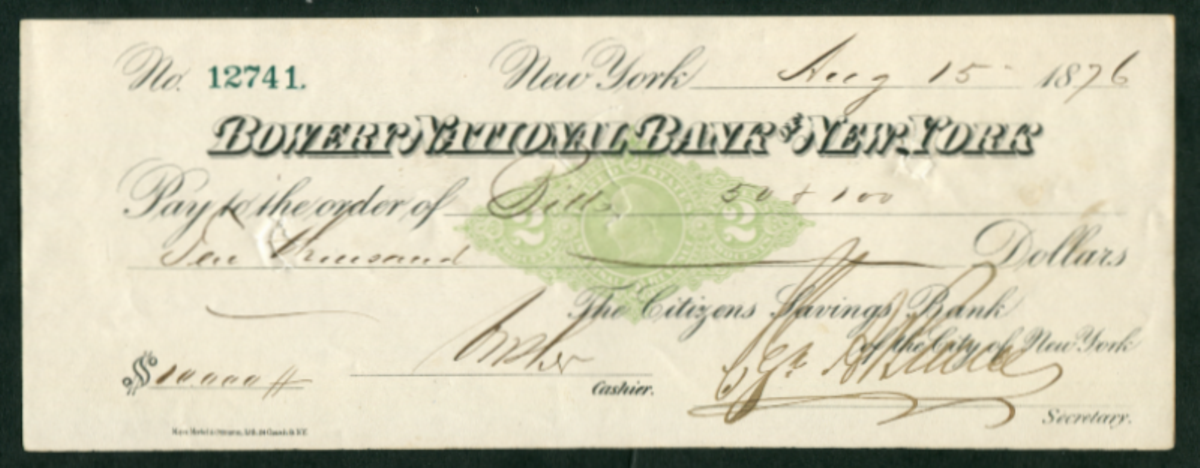 No. 12741. New York Aug 15 1876
BOWERY NATIONAL BANK OF NEW YORK
Pay to the order of Bills 50 + 100
Ten Thousand Dollars
2 2
The Citizens Savings Bank
of the City of New York
$10000
Cashier.
Secretary.